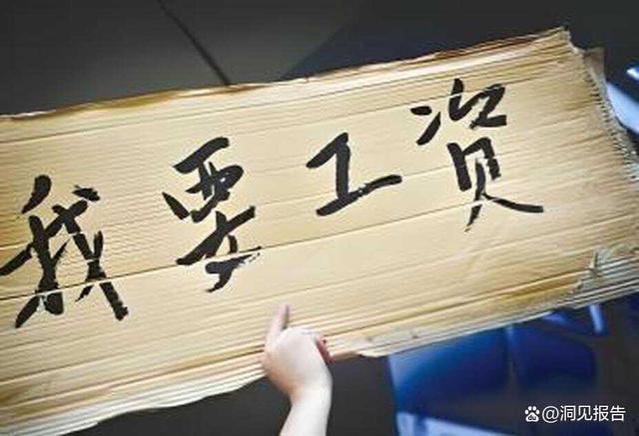 我要工资
@洞见报告